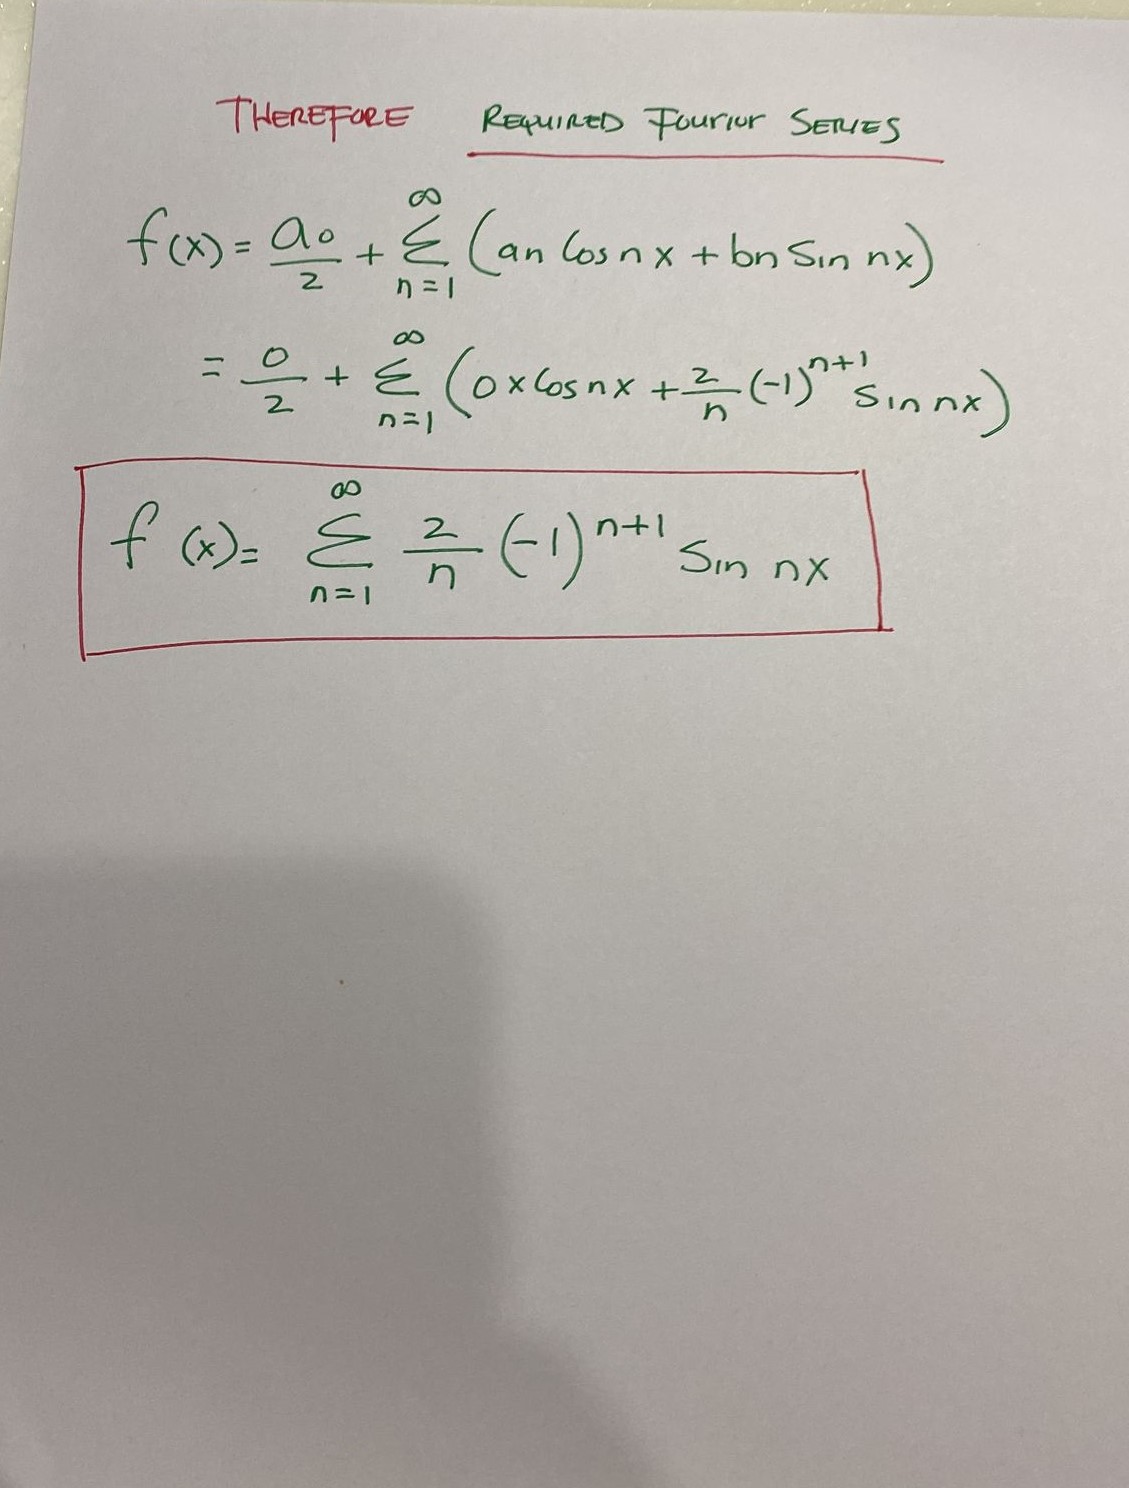 THEREFORE REQUIRED Fouriur SERIES
f(x) = a0/2 + ∞ Σ n=1 (an Cos nx + bn Sin nx)
= 0/2 + ∞ Σ n=1 (0 x Cos nx + 2/n (-1)^n+1 Sin nx)
f(x) = ∞ Σ n=1 2/n (-1)^n+1 Sin nx